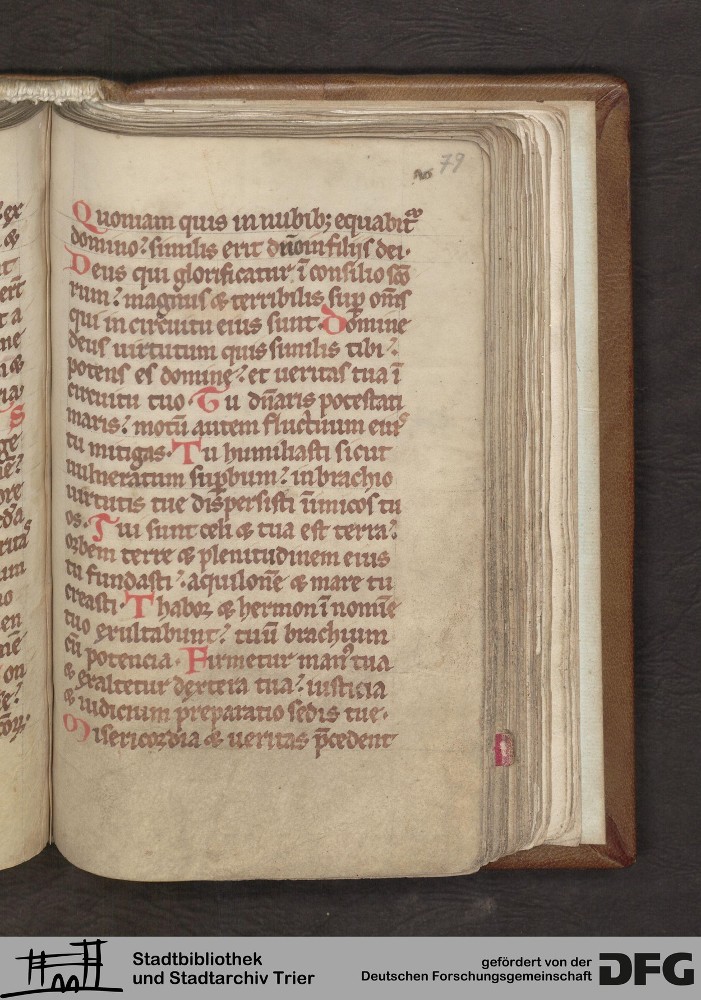 79
Quoniam quis in nubib; equabit᷑
domino? similis erit dño in filijs dei.
Deus qui glorificatur ĩ consilio scõ
rum? magnus & terribilis sup om̃s
qui in circuitu eius sunt. Domine
deus uirtutum quis similis tibi?
potens es domine? et ueritas tua ĩ
circuitu tuo. Tu dñaris potestati
maris? motũ autem fluctuum eiꝰ
tu mitigas. Tu humiliasti sicut
uulneratum supbum? in brachio
uirtutis tue dispersisti inimicos tu
os. Tui sunt celi & tua est terra?
orbem terre & plenitudinem eius
tu fundasti? aquilonẽ & mare tu
creasti. Thabor & hermon ĩ nomiẽ
tuo exultabunt? tuũ brachium
cũ potencia. Firmetur manꝰ tua
& exaltetur dextera tua? iusticia
& iudicium preparatio sedis tue.
Misericordia & ueritas p̃cedent
Stadtbibliothek
und Stadtarchiv Trier
gefördert von der
Deutschen Forschungsgemeinschaft
DFG